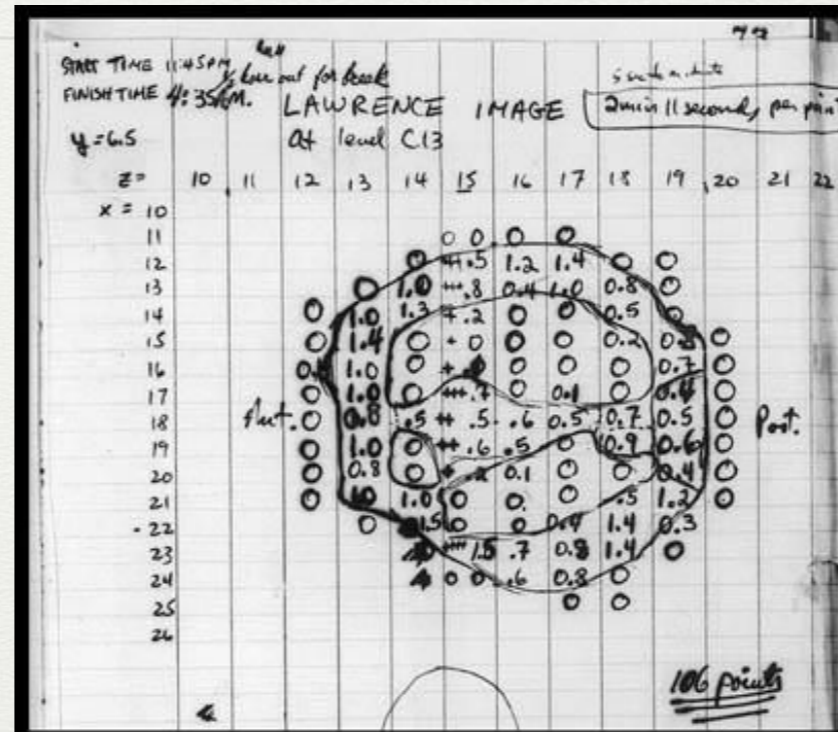 START TIME 11:45PM
½ hour out for break
FINISH TIME 4:35AM.
LAWRENCE IMAGE
2min 11 seconds per point
y = 6.5
At level C13
z = 10 11 12 13 14 15 16 17 18 19 20 21 22
x = 10
11 0 0 0 0
12 0 +++ .5 1.2 1.4 0 0
13 0 1.0 +++ .8 0.4 1.0 0.8 0
14 0 1.0 1.3 + .2 0 0 0.5 0
15 0 1.4 0 + 0 0 0 0.2 0
16 1.0 0 + 0 0 0 0.7 0
17 0 1.0 0 +++ .7 0 0.1 0 0.4 0
Ant. 18 0 0.8 .5 ++ .5 .6 0.5 0.7 0.5 0 Post.
19 0 1.0 0 ++ .6 .5 0 0.9 0.6 0
20 0 0.8 0 + .2 0.1 0 0 0.4 0
21 0 1.0 0 0. 0 .5 1.2 0
22 0 1.5 0 0 0.4 1.4 0.3
23 +++ 1.5 .7 0.8 1.4 0
24 0 0 .6 0.8 0
25 0 0
26
106 points